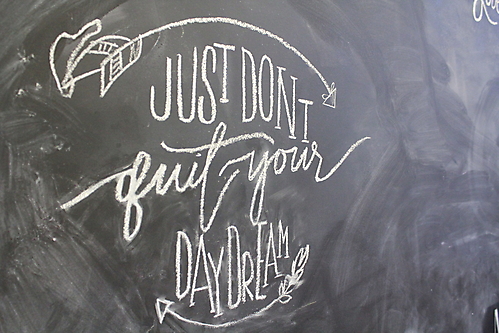 JUST DONT
quit your
DAYDREAM